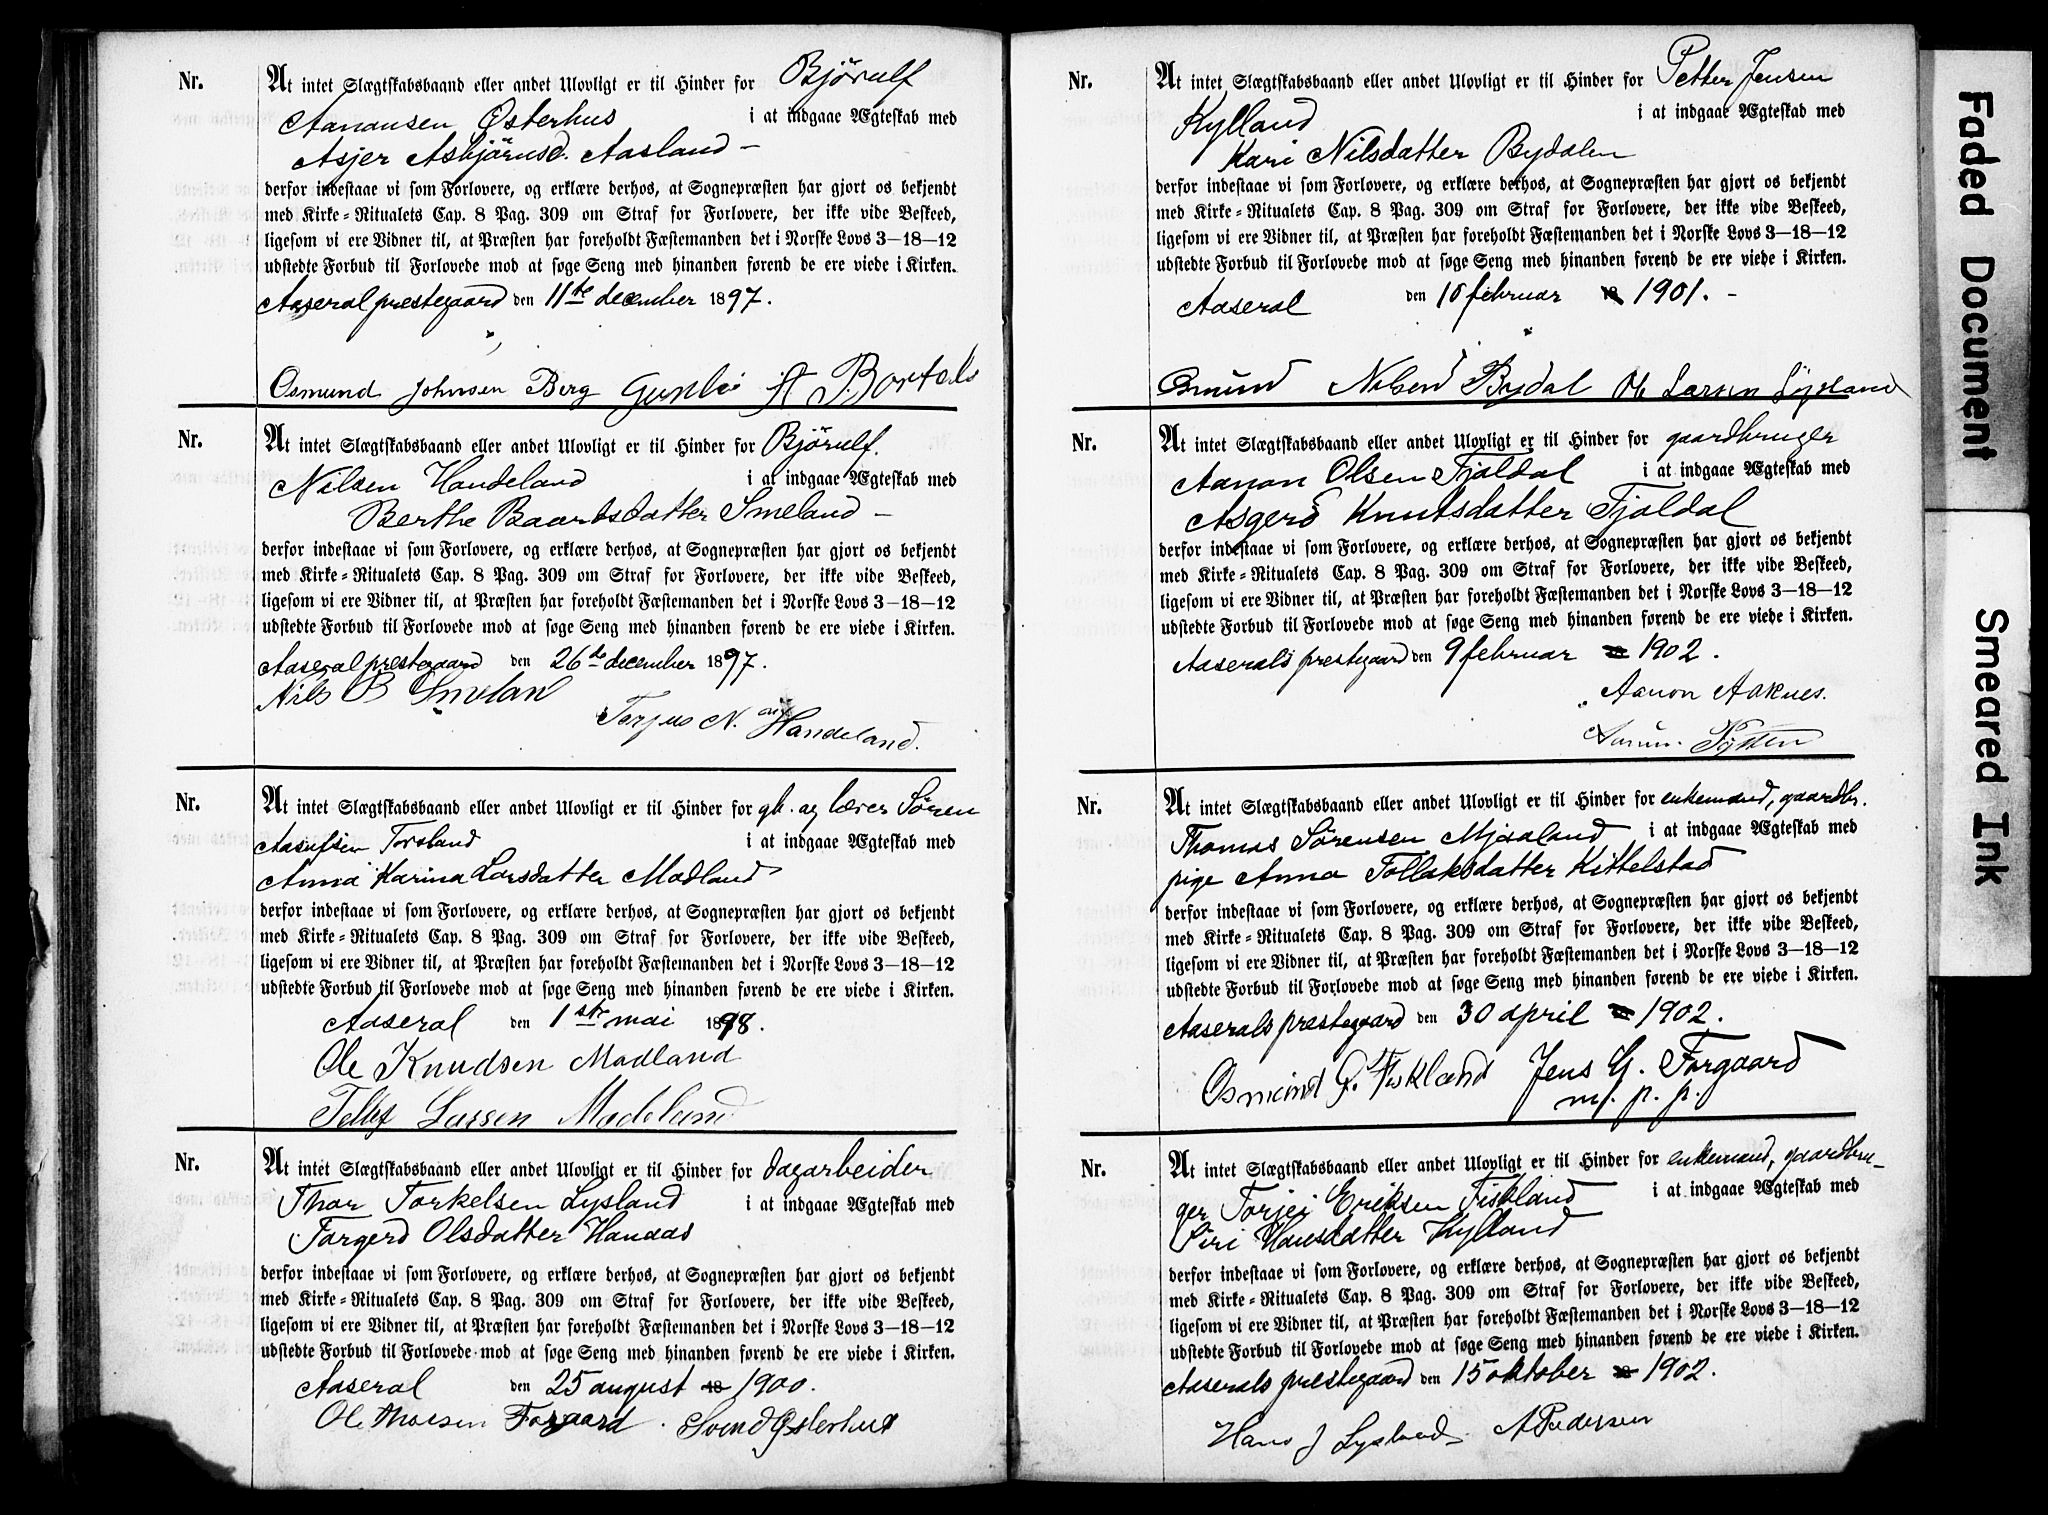 Nr.
At intet Slægtskabsbaand eller andet Ulovligt er til Hinder for Bjørulf
Aanonsen Østerhus i at indgaae Ægteskab med
Asjer Asbjørnsd. Aasland –
derfor indestaae vi som Forlovere, og erklære derhos, at Sognepræsten har gjort os bekjendt
med Kirke-Ritualets Cap. 8 Pag. 309 om Straf for Forlovere, der ikke vide Beskeed,
ligesom vi ere Vidner til, at Præsten har foreholdt Fæstemanden det i Norske Lovs 3–18–12
udstedte Forbud til Forlovede mod at søge Seng med hinanden førend de ere viede i Kirken.
Aaseral prestegaard den 11te december 1897.
Osmund Johnsen Berg
Nr.
At intet Slægtskabsbaand eller andet Ulovligt er til Hinder for Bjørulf
Nilsen Handeland i at indgaae Ægteskab med
Berthe Baardsdatter Smeland –
derfor indestaae vi som Forlovere, og erklære derhos, at Sognepræsten har gjort os bekjendt
med Kirke-Ritualets Cap. 8 Pag. 309 om Straf for Forlovere, der ikke vide Beskeed,
ligesom vi ere Vidner til, at Præsten har foreholdt Fæstemanden det i Norske Lovs 3–18–12
udstedte Forbud til Forlovede mod at søge Seng med hinanden førend de ere viede i Kirken.
Aaseral prestegaard den 26de december 1897.
Nils B Smelan
Torjus N. Handeland.
Nr.
At intet Slægtskabsbaand eller andet Ulovligt er til Hinder for gb. og lærer Søren
Aasulfsen Torsland i at indgaae Ægteskab med
Anna Karina Larsdatter Modland
derfor indestaae vi som Forlovere, og erklære derhos, at Sognepræsten har gjort os bekjendt
med Kirke-Ritualets Cap. 8 Pag. 309 om Straf for Forlovere, der ikke vide Beskeed,
ligesom vi ere Vidner til, at Præsten har foreholdt Fæstemanden det i Norske Lovs 3–18–12
udstedte Forbud til Forlovede mod at søge Seng med hinanden førend de ere viede i Kirken.
Aaseral den 1ste mai 1898.
Ole Knudsen Modland
Tellef Larsen Modeland
Nr.
At intet Slægtskabsbaand eller andet Ulovligt er til Hinder for dagarbeider
Thor Torkelsen Lysland i at indgaae Ægteskab med
Torgerd Olsdatter Haaaas
derfor indestaae vi som Forlovere, og erklære derhos, at Sognepræsten har gjort os bekjendt
med Kirke-Ritualets Cap. 8 Pag. 309 om Straf for Forlovere, der ikke vide Beskeed,
ligesom vi ere Vidner til, at Præsten har foreholdt Fæstemanden det i Norske Lovs 3–18–12
udstedte Forbud til Forlovede mod at søge Seng med hinanden førend de ere viede i Kirken.
Aaseral den 25 august 18 1900.
Ole Thorsen Forgaard. Svend Østerhus
Nr.
At intet Slægtskabsbaand eller andet Ulovligt er til Hinder for Petter Jensen
Kylland i at indgaae Ægteskab med
Kari Nilsdatter Bydalen
derfor indestaae vi som Forlovere, og erklære derhos, at Sognepræsten har gjort os bekjendt
med Kirke-Ritualets Cap. 8 Pag. 309 om Straf for Forlovere, der ikke vide Beskeed,
ligesom vi ere Vidner til, at Præsten har foreholdt Fæstemanden det i Norske Lovs 3–18–12
udstedte Forbud til Forlovede mod at søge Seng med hinanden førend de ere viede i Kirken.
Aaseral den 10 februar 18 1901. –
Osmund Nilsen Bydal Ole Larsen Lysland
Nr.
At intet Slægtskabsbaand eller andet Ulovligt er til Hinder for gaardbruger
Aanon Olsen Fjoldal i at indgaae Ægteskab med
Asgerd Knutsdatter Fjoldal
derfor indestaae vi som Forlovere, og erklære derhos, at Sognepræsten har gjort os bekjendt
med Kirke-Ritualets Cap. 8 Pag. 309 om Straf for Forlovere, der ikke vide Beskeed,
ligesom vi ere Vidner til, at Præsten har foreholdt Fæstemanden det i Norske Lovs 3–18–12
udstedte Forbud til Forlovede mod at søge Seng med hinanden førend de ere viede i Kirken.
Aaserals prestegaard den 9 februar 18 1902.
Aanon Aaknes.
Nr.
At intet Slægtskabsbaand eller andet Ulovligt er til Hinder for enkemand, gaardbr.
Thomas Sørensen Mjaaland i at indgaae Ægteskab med
pige Anna Tollaksdatter Kittelstad
derfor indestaae vi som Forlovere, og erklære derhos, at Sognepræsten har gjort os bekjendt
med Kirke-Ritualets Cap. 8 Pag. 309 om Straf for Forlovere, der ikke vide Beskeed,
ligesom vi ere Vidner til, at Præsten har foreholdt Fæstemanden det i Norske Lovs 3–18–12
udstedte Forbud til Forlovede mod at søge Seng med hinanden førend de ere viede i Kirken.
Aaserals prestegaard den 30 april 18 1902.
Osmund G. Fiskland Jens G. Forgaard
m. p. p.
Nr.
At intet Slægtskabsbaand eller andet Ulovligt er til Hinder for enkemand, gaardbru-
ger Torjei Eriksen Fiskland i at indgaae Ægteskab med
Siri Hansdatter Kylland
derfor indestaae vi som Forlovere, og erklære derhos, at Sognepræsten har gjort os bekjendt
med Kirke-Ritualets Cap. 8 Pag. 309 om Straf for Forlovere, der ikke vide Beskeed,
ligesom vi ere Vidner til, at Præsten har foreholdt Fæstemanden det i Norske Lovs 3–18–12
udstedte Forbud til Forlovede mod at søge Seng med hinanden førend de ere viede i Kirken.
Aaserals prestegaard den 15 oktober 18 1902.
Hans J Lysland A Pedersen
Faded Document
Smeared Ink